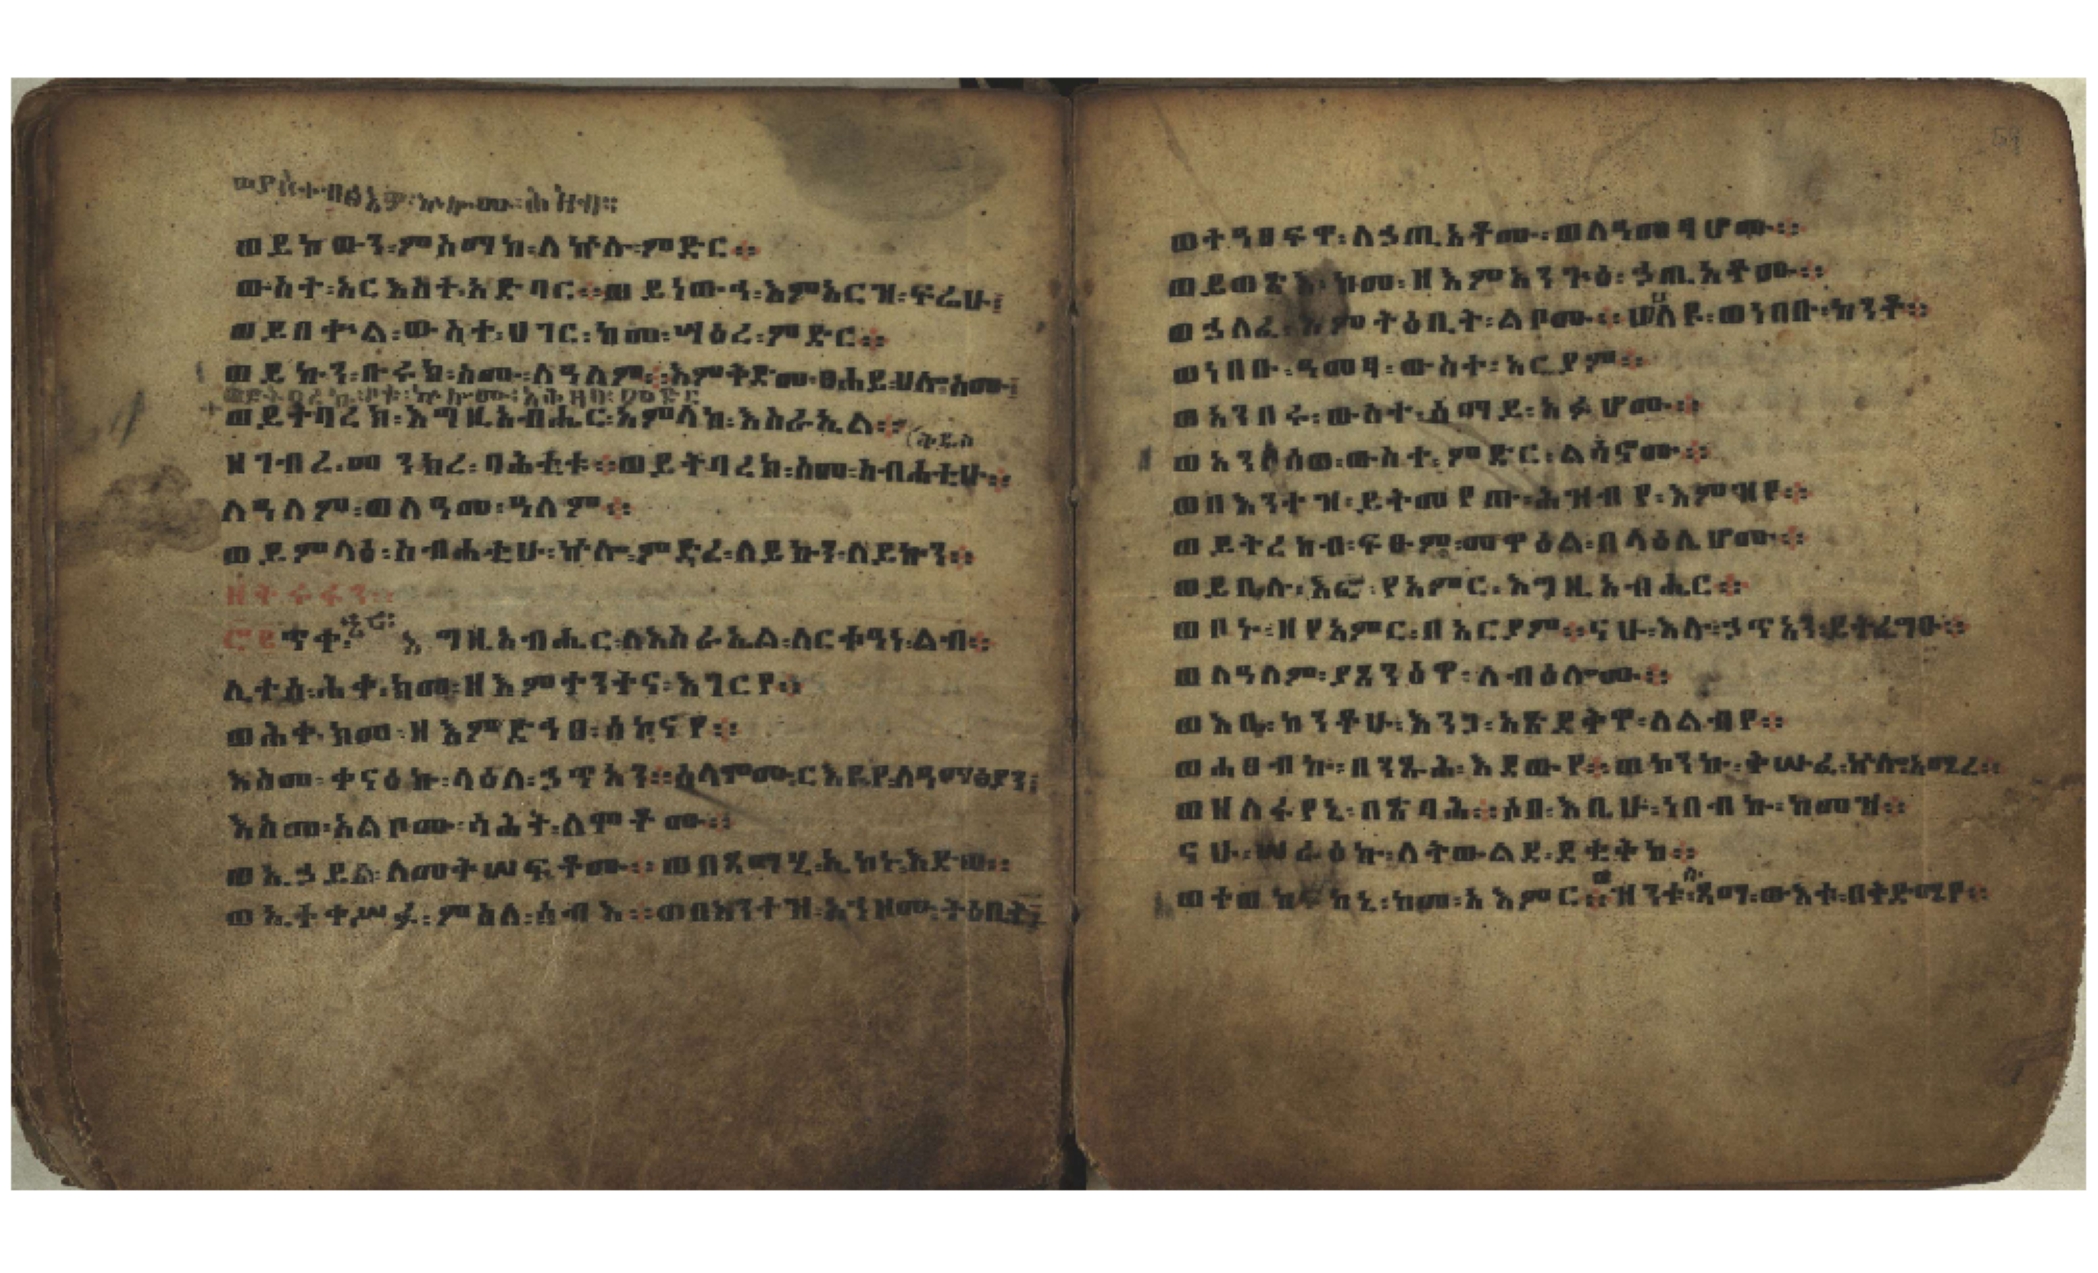 ወያስተበፅእዎ፡ ኵሎሙ፡ ሕዝብ።
ወይከውን፡ ምስማክ፡ ለኵሉ፡ ምድር።
ውስተ፡ አርእስተ፡ አድባር። ወይነውኅ፡ እምአርዝ፡ ፍሬሁ፤
ወይበቍል፡ ውስተ፡ ሀገር፡ ከመ፡ ሣዕረ፡ ምድር።
ወይኩን፡ ቡሩክ፡ ስሙ፡ ለዓለም። እምቅድመ፡ ፀሐይ፡ ሀሎ፡ ስሙ፤
ወይትባረኩ፡ ቦቱ፡ ኵሎሙ፡ አሕዛበ፡ ምድር
ወይትባረክ፡ እግዚአብሔር፡ አምላከ፡ እስራኤል።
ቅዱስ
ዘገብረ፡ መንክረ፡ ባሕቲቱ። ወይትባረክ፡ ስመ፡ ስብሐቲሁ።
ለዓለም፡ ወለዓመ፡ ዓለም።
ወይምላዕ፡ ስብሐቲሁ፡ ኵሎ፡ ምድረ፡ ለይኩን፡ ለይኩን።
ዘትሩፋን።
ጥቀ፡ ኄር፡ እግዚአብሔር፡ ለእስራኤል፡ ለርቱዓነ፡ ልብ።
ሊተሰ፡ ሕቀ፡ ክመ፡ ዘእምተንትና፡ እገርየ።
ወሕቀ፡ ክመ፡ ዘእምድኅፀ፡ ሰኰናየ።
እስመ፡ ቀናዕኩ፡ ላዕለ፡ ኃጥአን። ሰላሞሙ፡ ርእይየ፡ ለዓማፅያን፤
እስመ፡ አልቦሙ፡ ሣሕት፡ ለሞቶሙ።
ወኢኃይል፡ ለመትሠፍቶሙ። ወበጻማሂ፡ ኢከኑ፡ እደው።
ወኢተቀሥፉ፡ ምስለ፡ ሰብእ። ወበእንተዝ፡ አኀዞሙ፡ ትዕቢት፤
ወተዓፀፍዋ፡ ለኃጢአቶሙ፡ ወለዓመፃሆሙ።
ወይወፅእ፡ ከመ፡ ዘእምአንጕዕ፡ ኃጢአቶሙ።
ወኃለፈ፡ እምትዕቢት፡ ልቦሙ። ሀለዩ፡ ወነበቡ፡ ከንቶ።
ወነበቡ፡ ዓመፃ፡ ውስተ፡ አርያም።
ወአንበሩ፡ ውስተ፡ ሰማይ፡ አፉሆሙ።
ወአንሶሰወ፡ ውስተ፡ ምድር፡ ልሳኖሙ።
ወበእንተዝ፡ ይትመየጡ፡ ሕዝብየ፡ እምዝየ።
ወይትረከብ፡ ፍፁም፡ መዋዕል፡ በላዕሌሆሙ።
ወይቤሉ፡ እፎ፡ የአምር፡ እግዚአብሔር።
ወቦኑ፡ ዘየአምር፡ በአርያም። ናሁ፡ እሉ፡ ኃጥአን፡ ይትፌግዑ።
ወለዓለም፡ ያጸንዕዋ፡ ለብዕሎሙ።
ወእቤ፡ ከንቶሁ፡ እንጋ፡ አጽደቅዋ፡ ለልብየ።
ወሐፀብኩ፡ በንጹሕ፡ እደውየ። ወኮንኩ፡ ቅሡፈ፡ ኵሎ፡ አሚረ።
ወዘለፋየኒ፡ በጽባሕ። ሶበ፡ እቤሁ፡ ነበብኩ፡ ከመዝ።
ናሁ፡ ሠራዕኩ፡ ለትውልደ፡ ደቂቅከ።
ወተወከፍከኒ፡ ከመ፡ አእምር። ዝንቱ፡ ጻማ፡ ውእቱ፡ በቅድሜየ።